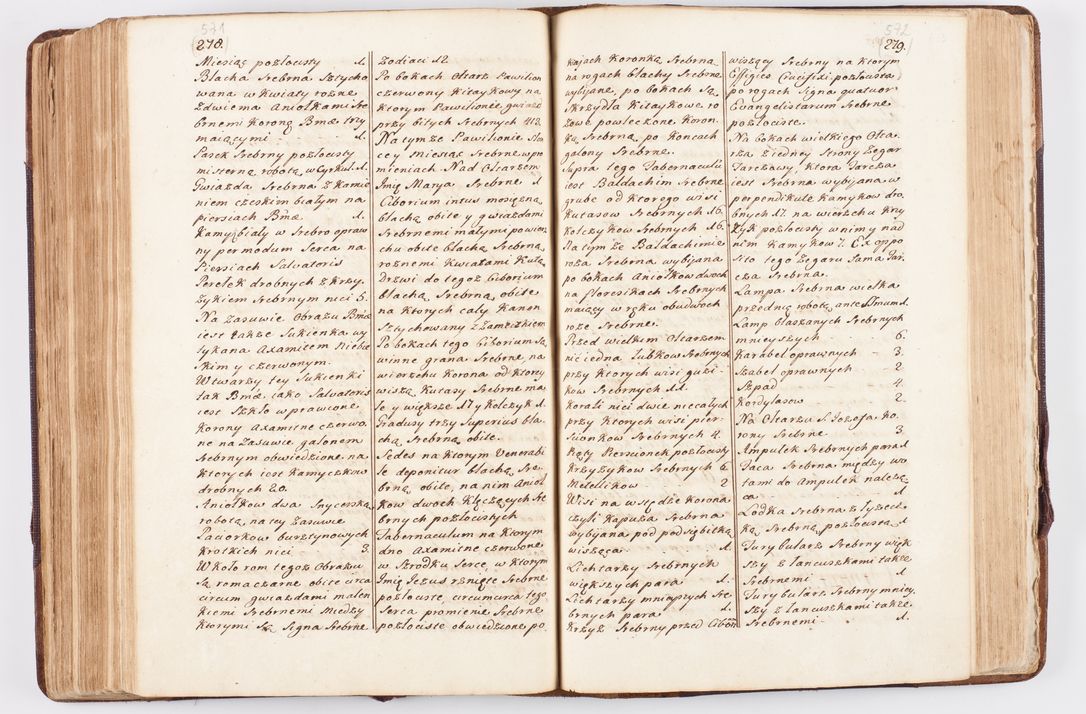 571
278.
Miesiąc pozłocisty 1.
Blacha Srebrna Sztycho
wana w kwiaty rożne
Zdwiema Aniołkami Sre
brnemi Koronę Bmæ trzy
maiącymi 1.
Pasek Srebrny pozłocisty
misterną robotą w Cyrkuł. 1.
Gwiazda Srebrna z Kamie
niem czeskim białym na
piersiach Bmæ 1.
Kamyk biały w Srebro opraw
ny per modum Serca na
Piersiach Salvatoris
Perełek drobnych z krzy
żykiem Srebrnym nici 5.
Na Zasuwie Obrazu Bmæ
iest także Sukienka wy
tykana Axamitem Niebie
skim y czerwonym.
W twarzy tey Sukienki
tak Bmæ jako Salvatoris
iest Szkło wprawione
Korony Axamitne czerwo
ne na Zasuwie galonem
Srebrnym obwiedzione na
ktorych iest Kamyczkow
drobnych 20.
Aniołkow dwa Snycerską
robotą na tey Zasuwie
Paciorkow bursztynowych
krotkich nici 3.
W koło ram tegoż Obrazu
Są rama czarne obite circa
circum gwiazdami maleń
kiemi Srebrnemi Między
ktorymi Są Signa Srebrne
Zodiaci 12.
Po bokach Ołtarz Pawilion
czerwony Kitaykowy na
ktorym Pawilionie gwiazd
przybitych Srebrnych 413.
Na tymże Pawilionie Sło
ce y Miesiąc Srebrne w pro
mieniach Nad Ołtarzem
Imię Marya Srebrne 1
Ciborium intus mosiężną
blachą obite y gwiazdami
Srebrnemi małymi powierz
chu obite blachą Srebrną
rożnemi Kwiatami Kutą
Drzwi do tegoż Ciborium
blachą Srebrną obite
na ktorych cały Kanon
Sztychowany z Zameczkiem
Po bokach tego Ciborium Są
winne grana Srebrne na
wierzchu Korona od ktorey
wiszą Kutasy Srebrne ma
łe y większe 17 y Kolczyk 1.
Gradusy trzy Superius bla
chą Srebrną obite.
Sedes na ktorym Venerabi
le deponitur blachą Sre
brną obite, na nim Anioł
kow dwoch Klęczących Sre
brnych pozłocistych
Tabernaculum na ktorym
dno Axamitne czerwone
w Szrodku Serce, w ktorym
Imię Jezus rznięte Srebrne
pozłociste, circumcirca tego
Serca promienie Srebrne
pozłociste obwiedzione po
572
279.
krajach Koronką Srebrną
na rogach blachy Srebrne
wybijane, po bokach Są
Skrzydła Kitaykowe ro
zowe powleczone Koron
ką Srebrną, po Koncach
galony Srebrne.
Supra tego Tabernaculi
iest Baldachim Srebrne
grube od ktorego wisi
Kutasow Srebrnych 16.
Kolczykow Srebrnych 16.
Na tymże Baldachimie
roża Srebrna wybijana
po bokach Aniołkow dwoch
na floresikach Srebrnych
maiący w ręku obudwoch
roże Srebrne.
Przed wielkim Ołtarzem
nic iedna Łubkow Srebrnych
przy ktorych wisi guzi
kow Srebrnych 11.
Korali nici dwie niecałych
przy ktorych wisi pier
scionkow Srebrnych 4.
Pięty Pierscionek pozłocisty
Krzyżykow Srebrnych 6
Metelikow 2
Wisi na wstędze Korona
czyli Kapuza Srebrna
wybijana pod podsiębitką
wisząca 1.
Lichtarzy Srebrnych
większych para 1.
Lichtarzy mnieyszych Sre
brnych para 1.
Krzyż Srebrny przed Cibor
wiszący Srebrny na ktorym
Effigies Crucifixi pozłocista
po rogach Signa quatuor
Evangelistarum Srebrne
pozłociste.
Na bokach wielkiego Ołta
rza z iedney Strony Zegar
Tarczowy, ktora Tarcza
iest Srebrna wybijana w
perpendikule Kamykow dro
bnych 17. na wierzchu Krzy
żyk pozłocisty w nim y nad
nim Kamykow 7. Ex oppo
sito tego Zegaru Sama Tar
cza Srebrna.
Lampa Srebrna wielka
przednią robotą ante SSmum 1.
Lamp blaszanych Srebrnych
mnieyszych 6.
Karabel oprawnych 3.
Szabel oprawnych 2
Szpad 4.
Kordylasow 2.
Na Ołtarzu S. Jozefa Ko
rony Srebrne 3.
Ampułek Srebrnych para 1
Taca Srebrna między wo
tami do Ampułek należą
ca 1
Łodka Srebrna z łyżecz
ką Srebrną pozłocistą 1
Turybularz Srebrny więk
szy z łancuszkami także
Srebrnemi 1
Turybularz Srebrny mniey
szy z łancuszkami także
Srebrnemi 1.